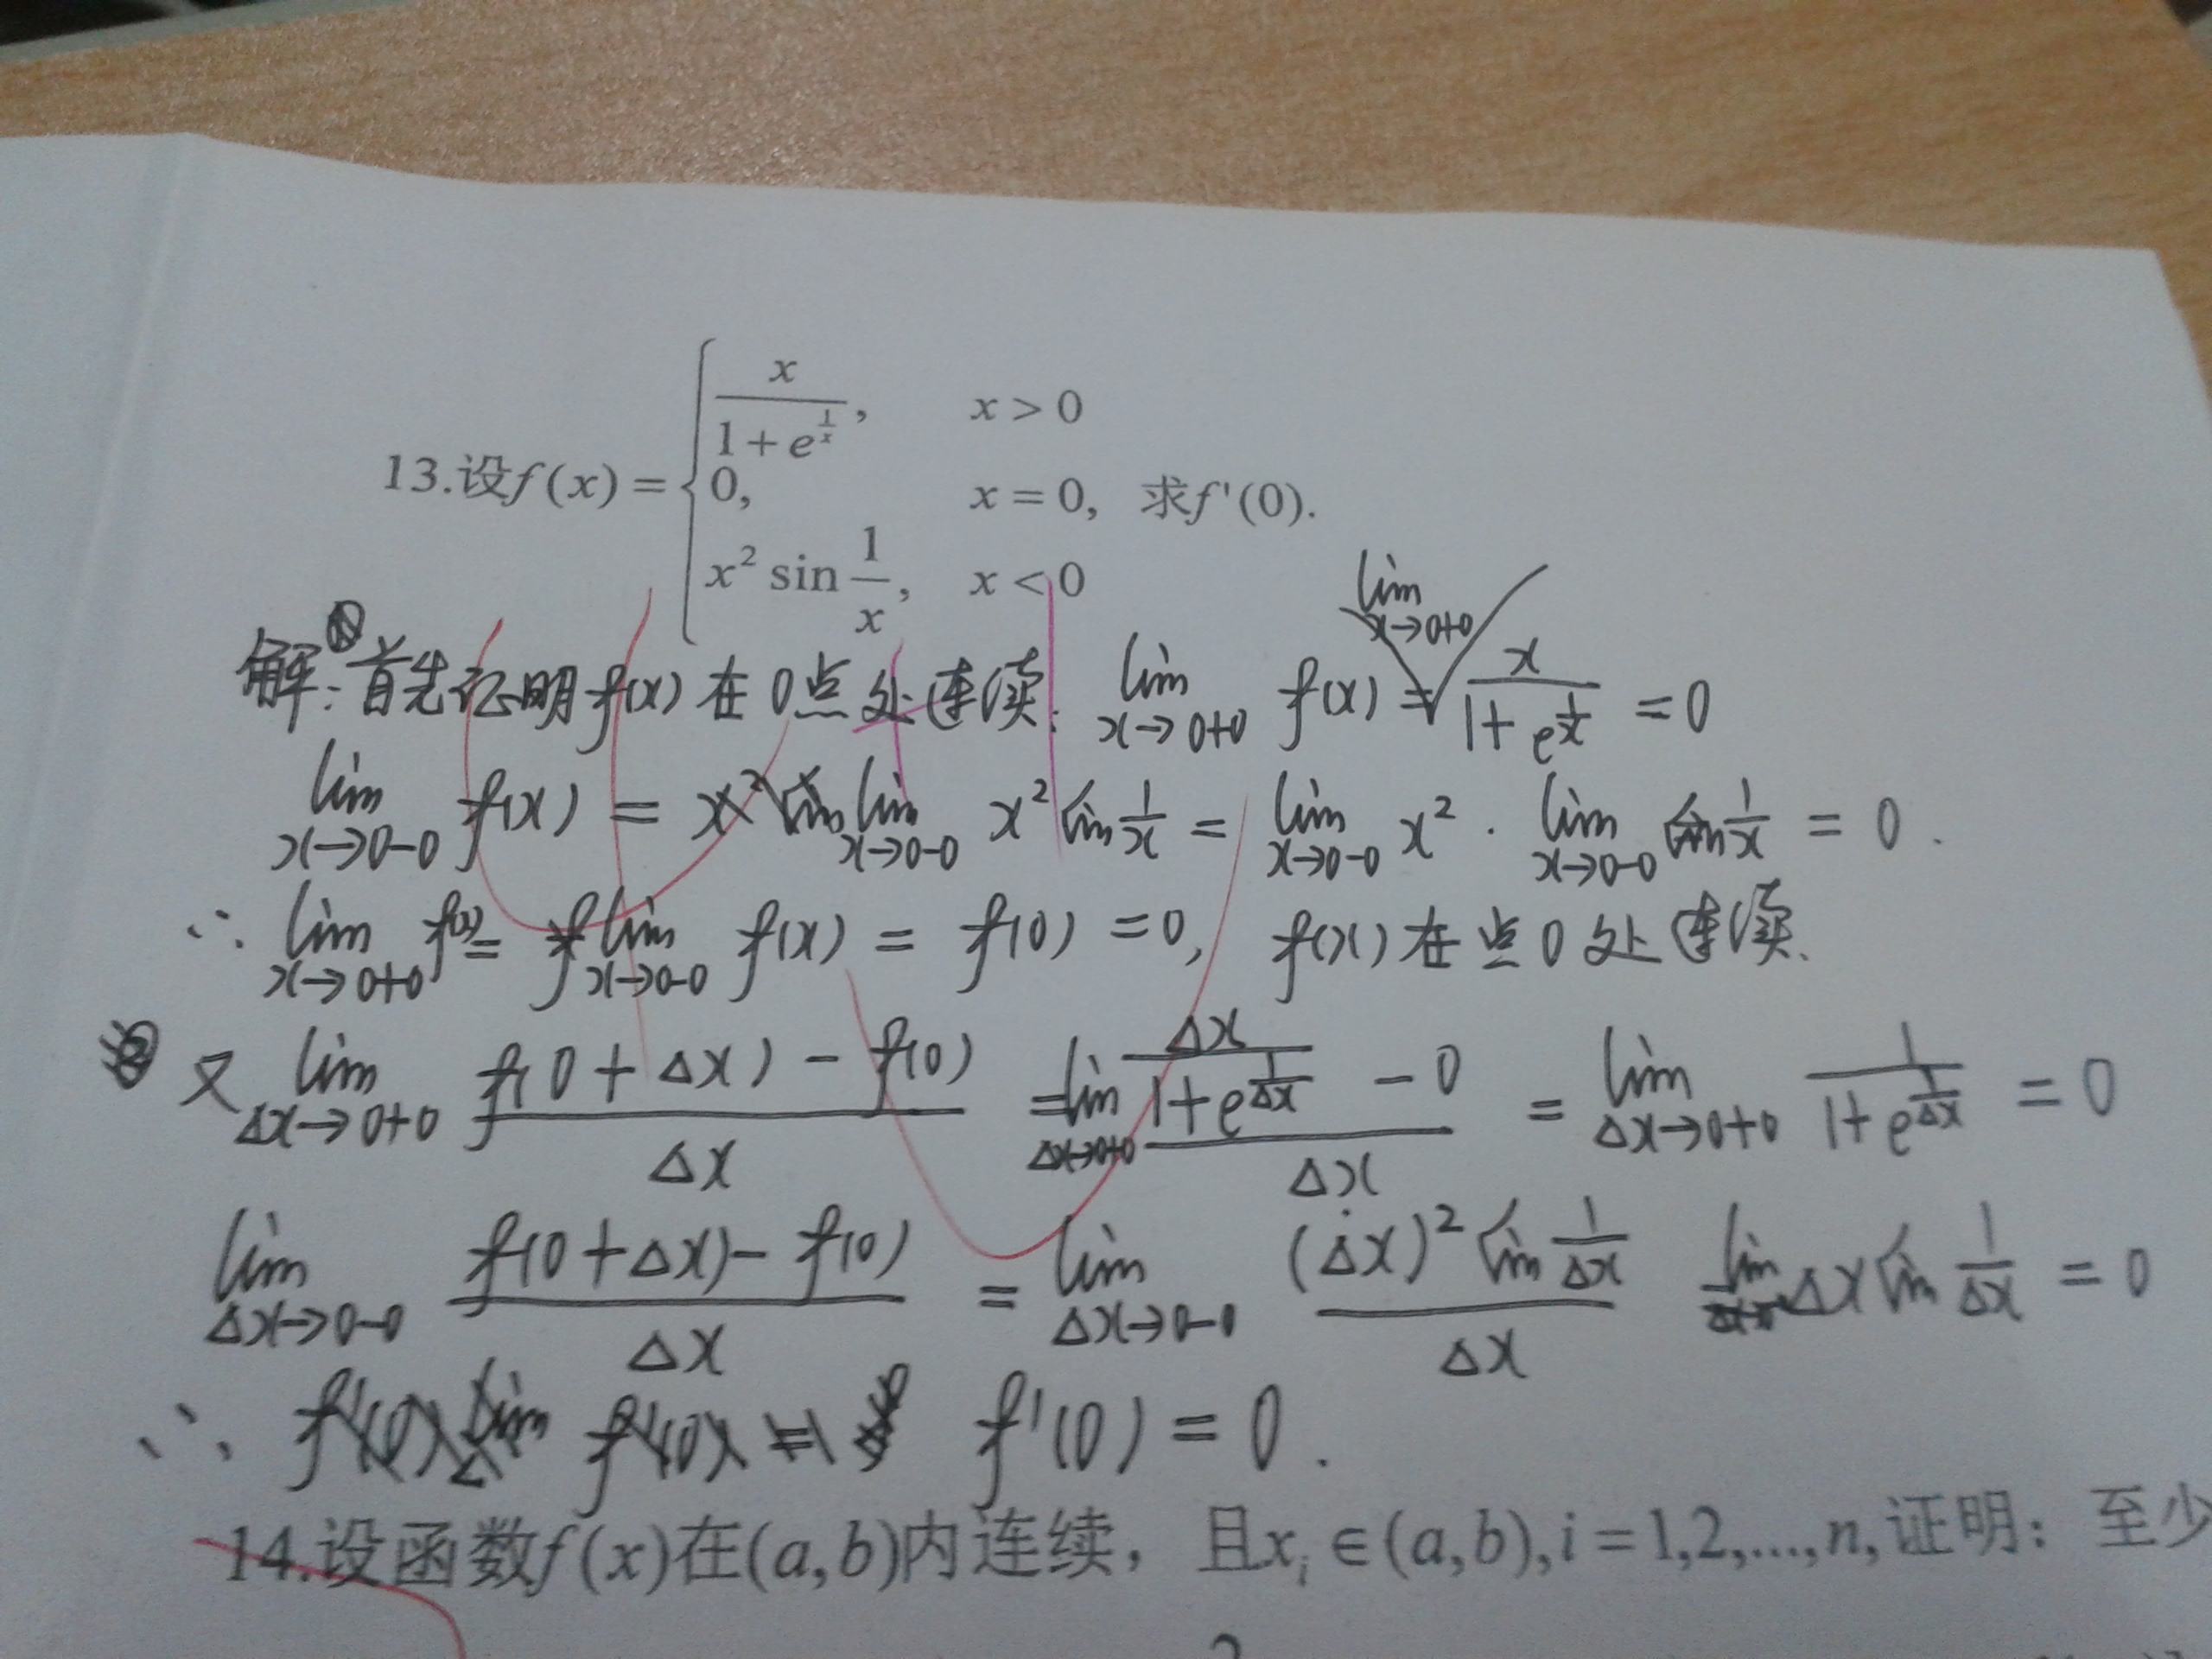 13.设f(x)=
x/(1+e^(1/x)), x>0
0, x=0, 求f'(0).
x² sin 1/x, x<0
解: 首先证明f(x)在0点处连续. lim x→0+0 f(x) = lim x→0+0 x/(1+e^(1/x)) =0
lim x→0-0 f(x) = lim x→0-0 x² sin 1/x = lim x→0-0 x² · lim x→0-0 sin 1/x = 0.
∴ lim x→0+0 f(x) = lim x→0-0 f(x) = f(0) =0, f(x)在点0处连续.
又 lim Δx→0+0 (f(0+Δx)-f(0))/Δx = lim Δx→0+0 (Δx/(1+e^(1/Δx)) -0)/Δx = lim Δx→0+0 1/(1+e^(1/Δx)) = 0
lim Δx→0-0 (f(0+Δx)-f(0))/Δx = lim Δx→0-0 (Δx)² sin 1/Δx / Δx lim Δx sin 1/Δx = 0
∴ f'(0) = 0.
14.设函数f(x)在(a,b)内连续，且xᵢ∈(a,b),i=1,2,...,n,证明：至少